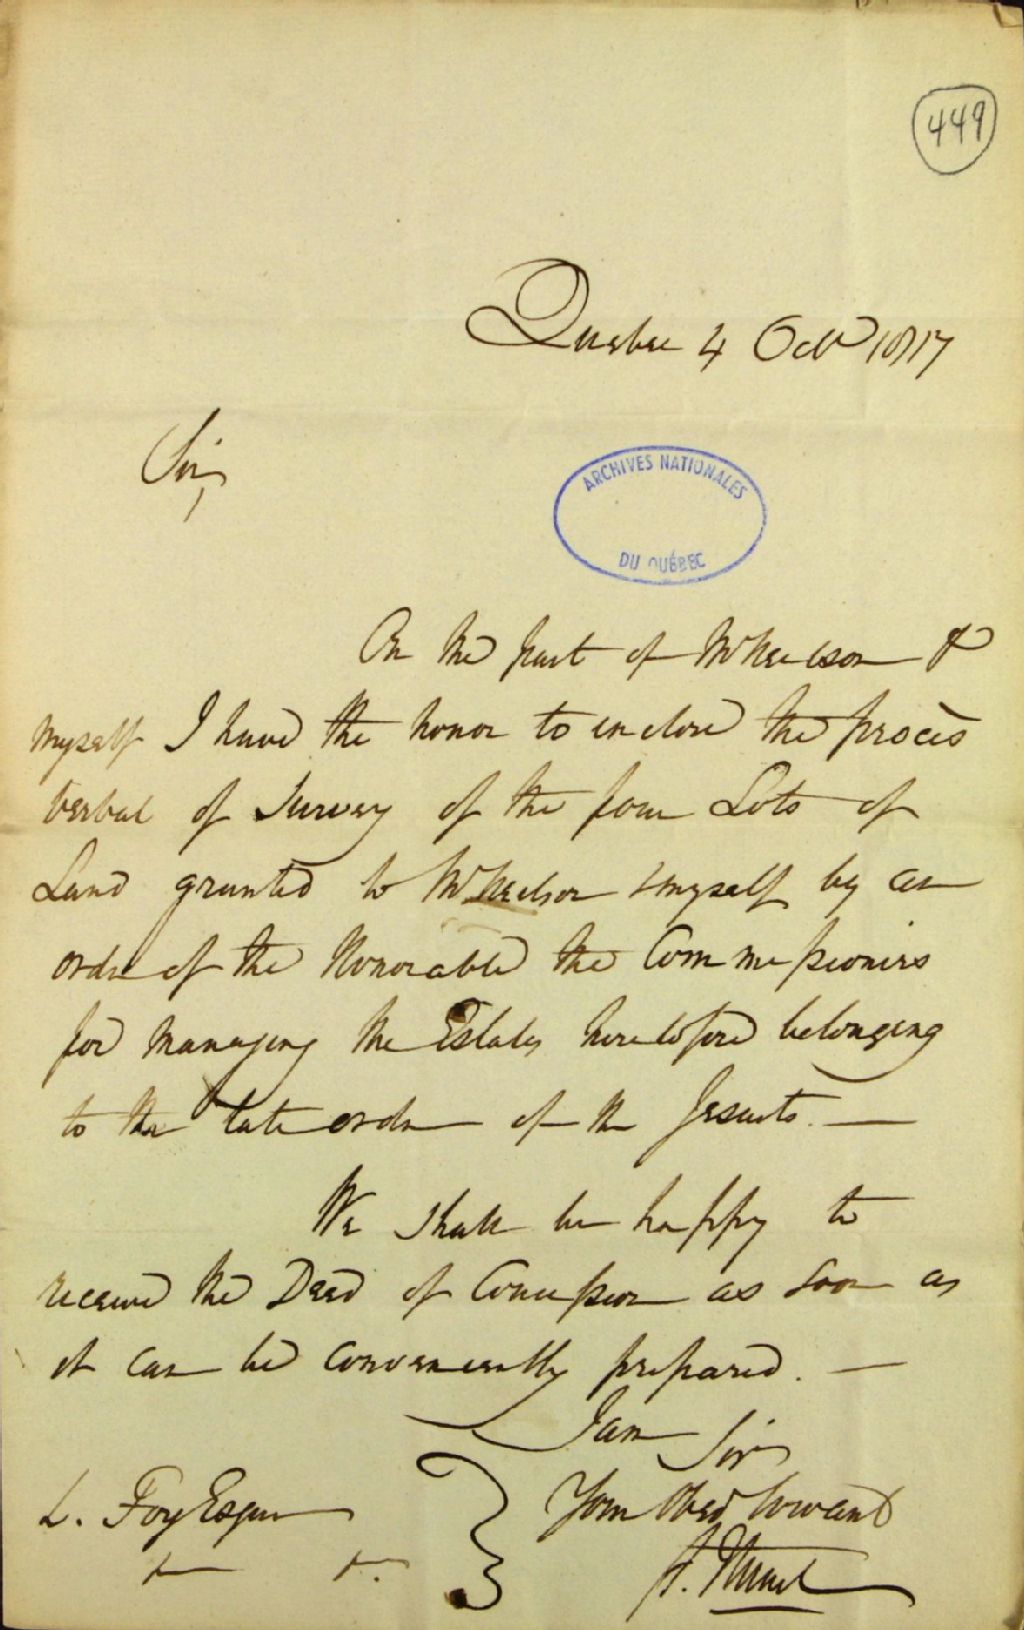 449
Quebec 4 Octr 1817
Sir,
ARCHIVES NATIONALES
DU QUÉBEC
On the part of Mr Neilson &
myself I have the honor to enclose the procès
verbal of Survey of the four Lots of
Land granted to Mr Neilson & myself by an
order of the Honorable the Commissioners
for managing the Estates heretofore belonging
to the late order of the Jesuits. —
We shall be happy to
receive the Deed of Concession as soon as
it can be conveniently prepared. —
I am Sir
Your Obed Servant
L. Foy Esqr
A. Stuart